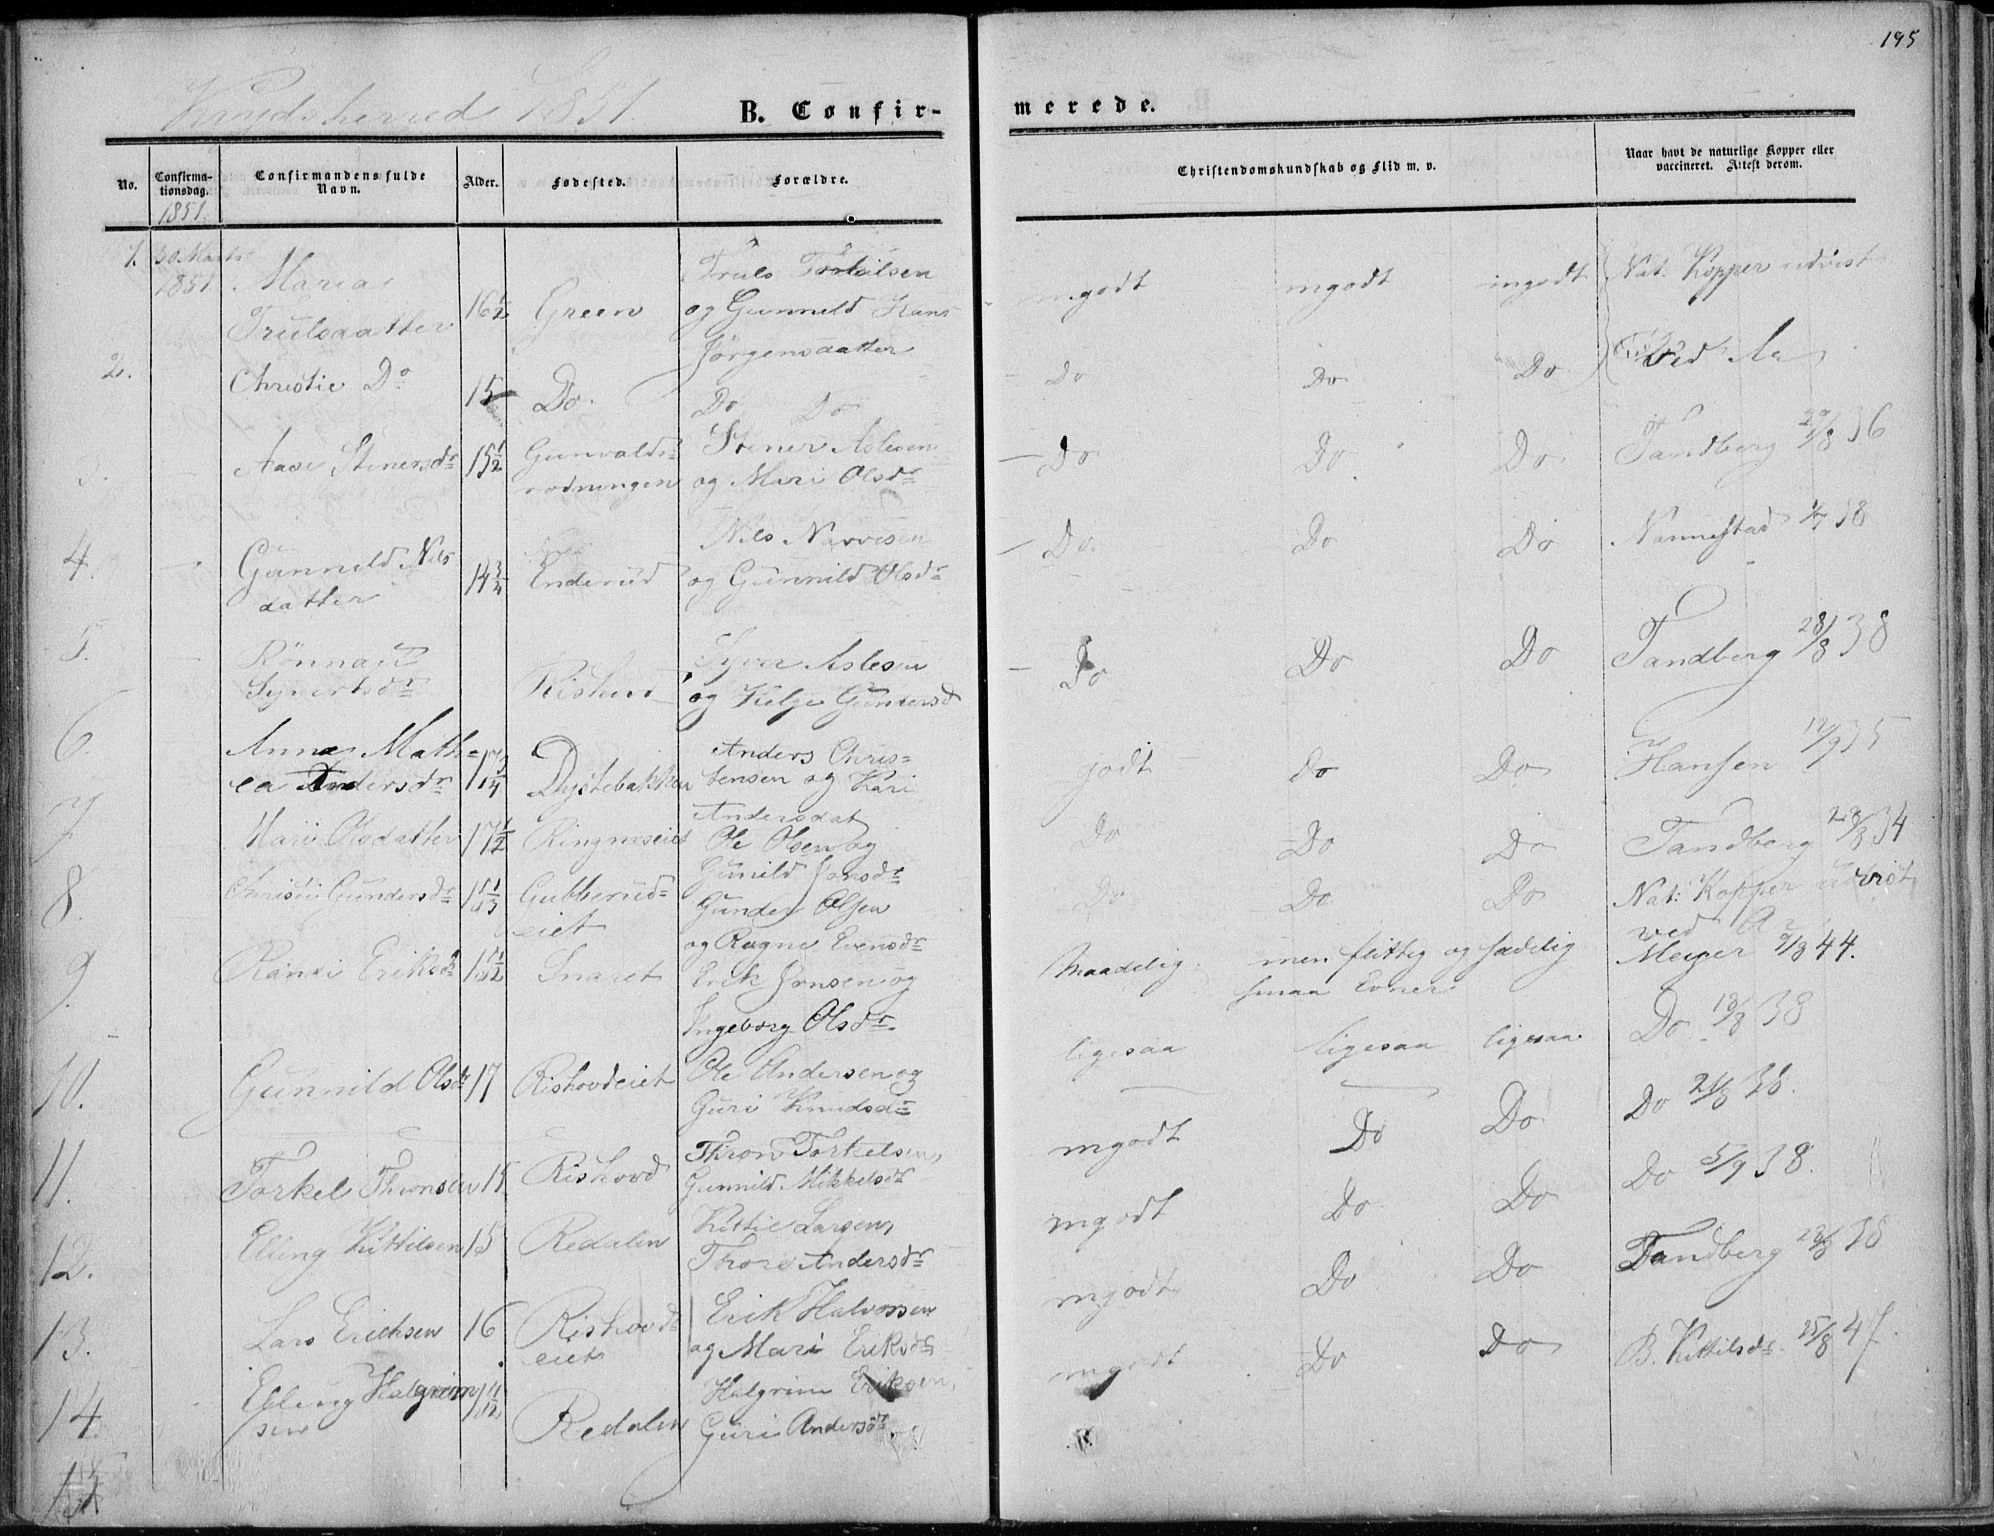 195
1851.
B. Confir-
merede.
No.
Confirma-
tionsdag.
1851.
Confirmandens fulde
Navn.
Alder.
Fødested.
Forældre.
Christendomskundskab og Flid m. v.
Naar havt de naturlige Kopper eller
vaccineret. Attest derom.
1. 30 Marts
1851
Maria
Trulsdatter
16½ Green
Truls Torkilsen
og Gunnild Hans
Jörgensdatter
mgodt mgodt mgodt Nat. Kopper udvist
2.
Christie Do 15 Do.
Do Do
Do Do Do ved Aa
3.
Aase Stenersdr 15½ Gunvalds-
rodningen
Stener Aslesen
og Mari Olsdr
Do Do Do Tandberg 29/8 36
4.
Gunnild Nils
datter
14¾ Enderud
Nils Narvesen
og Gunnild Olsdr
Do Do Do Nannestad 1/7 38
5.
Rönnau
Syvertsdr
Rishovd
Syver Aslesen
og Helge Gundersd
Do Do Do Tandberg 28/8 38
6.
Anna Math=
ea Andersdr
Dystebakken
Anders Chris=
tensen og Kari
Andersdat
godt Do Do Hansen 12/9 35
7
Mari Olsdatter 17½ Ringneseiet
Ole Olsen og
Gunild Jonsdr
Do Do Do Tandberg 28/8 34
8.
Christi Gundersdr Gutterud=
eiet
Gunder Olsen
og Ragne Evensdr
Do Do Do Nat: Kopper udvist
ved A
9.
Ranei Eriksdr 15½ Snaret
Erik Jonsen og
Ingeborg Olsdr.
Maadelig men flittig og sædelig
smaa Evner
Meyer 9/8 44.
10.
Gunnild Olsdr 17 Rishovdeiet
Ole Andersen og
Guri Knudsdr
ligesaa ligesaa ligesaa Do 18/8 38
11.
Torkel Thronsen 15 Rishovd
Thron Torkelsen,
Gunnild Mikkelsdr
mgodt Do Do Do 21/8 38.
12.
Elling Kittilsen 15 Redalen
Kittil Larsen,
Thore Andersdr
mgodt Do Do Do 5/9 38.
13.
Lars Erichsen 16 Rishovd
eiet
Erik Halvorsen
og Mari Eriksdr
mgodt Do Do Tandberg 28/8 38
14.
Elling Halgrim
sen
Redalen
Halgrim Eriksen,
Guri Andersdr.
mgodt Do Do B. Kittilsdr. 25/8 47.